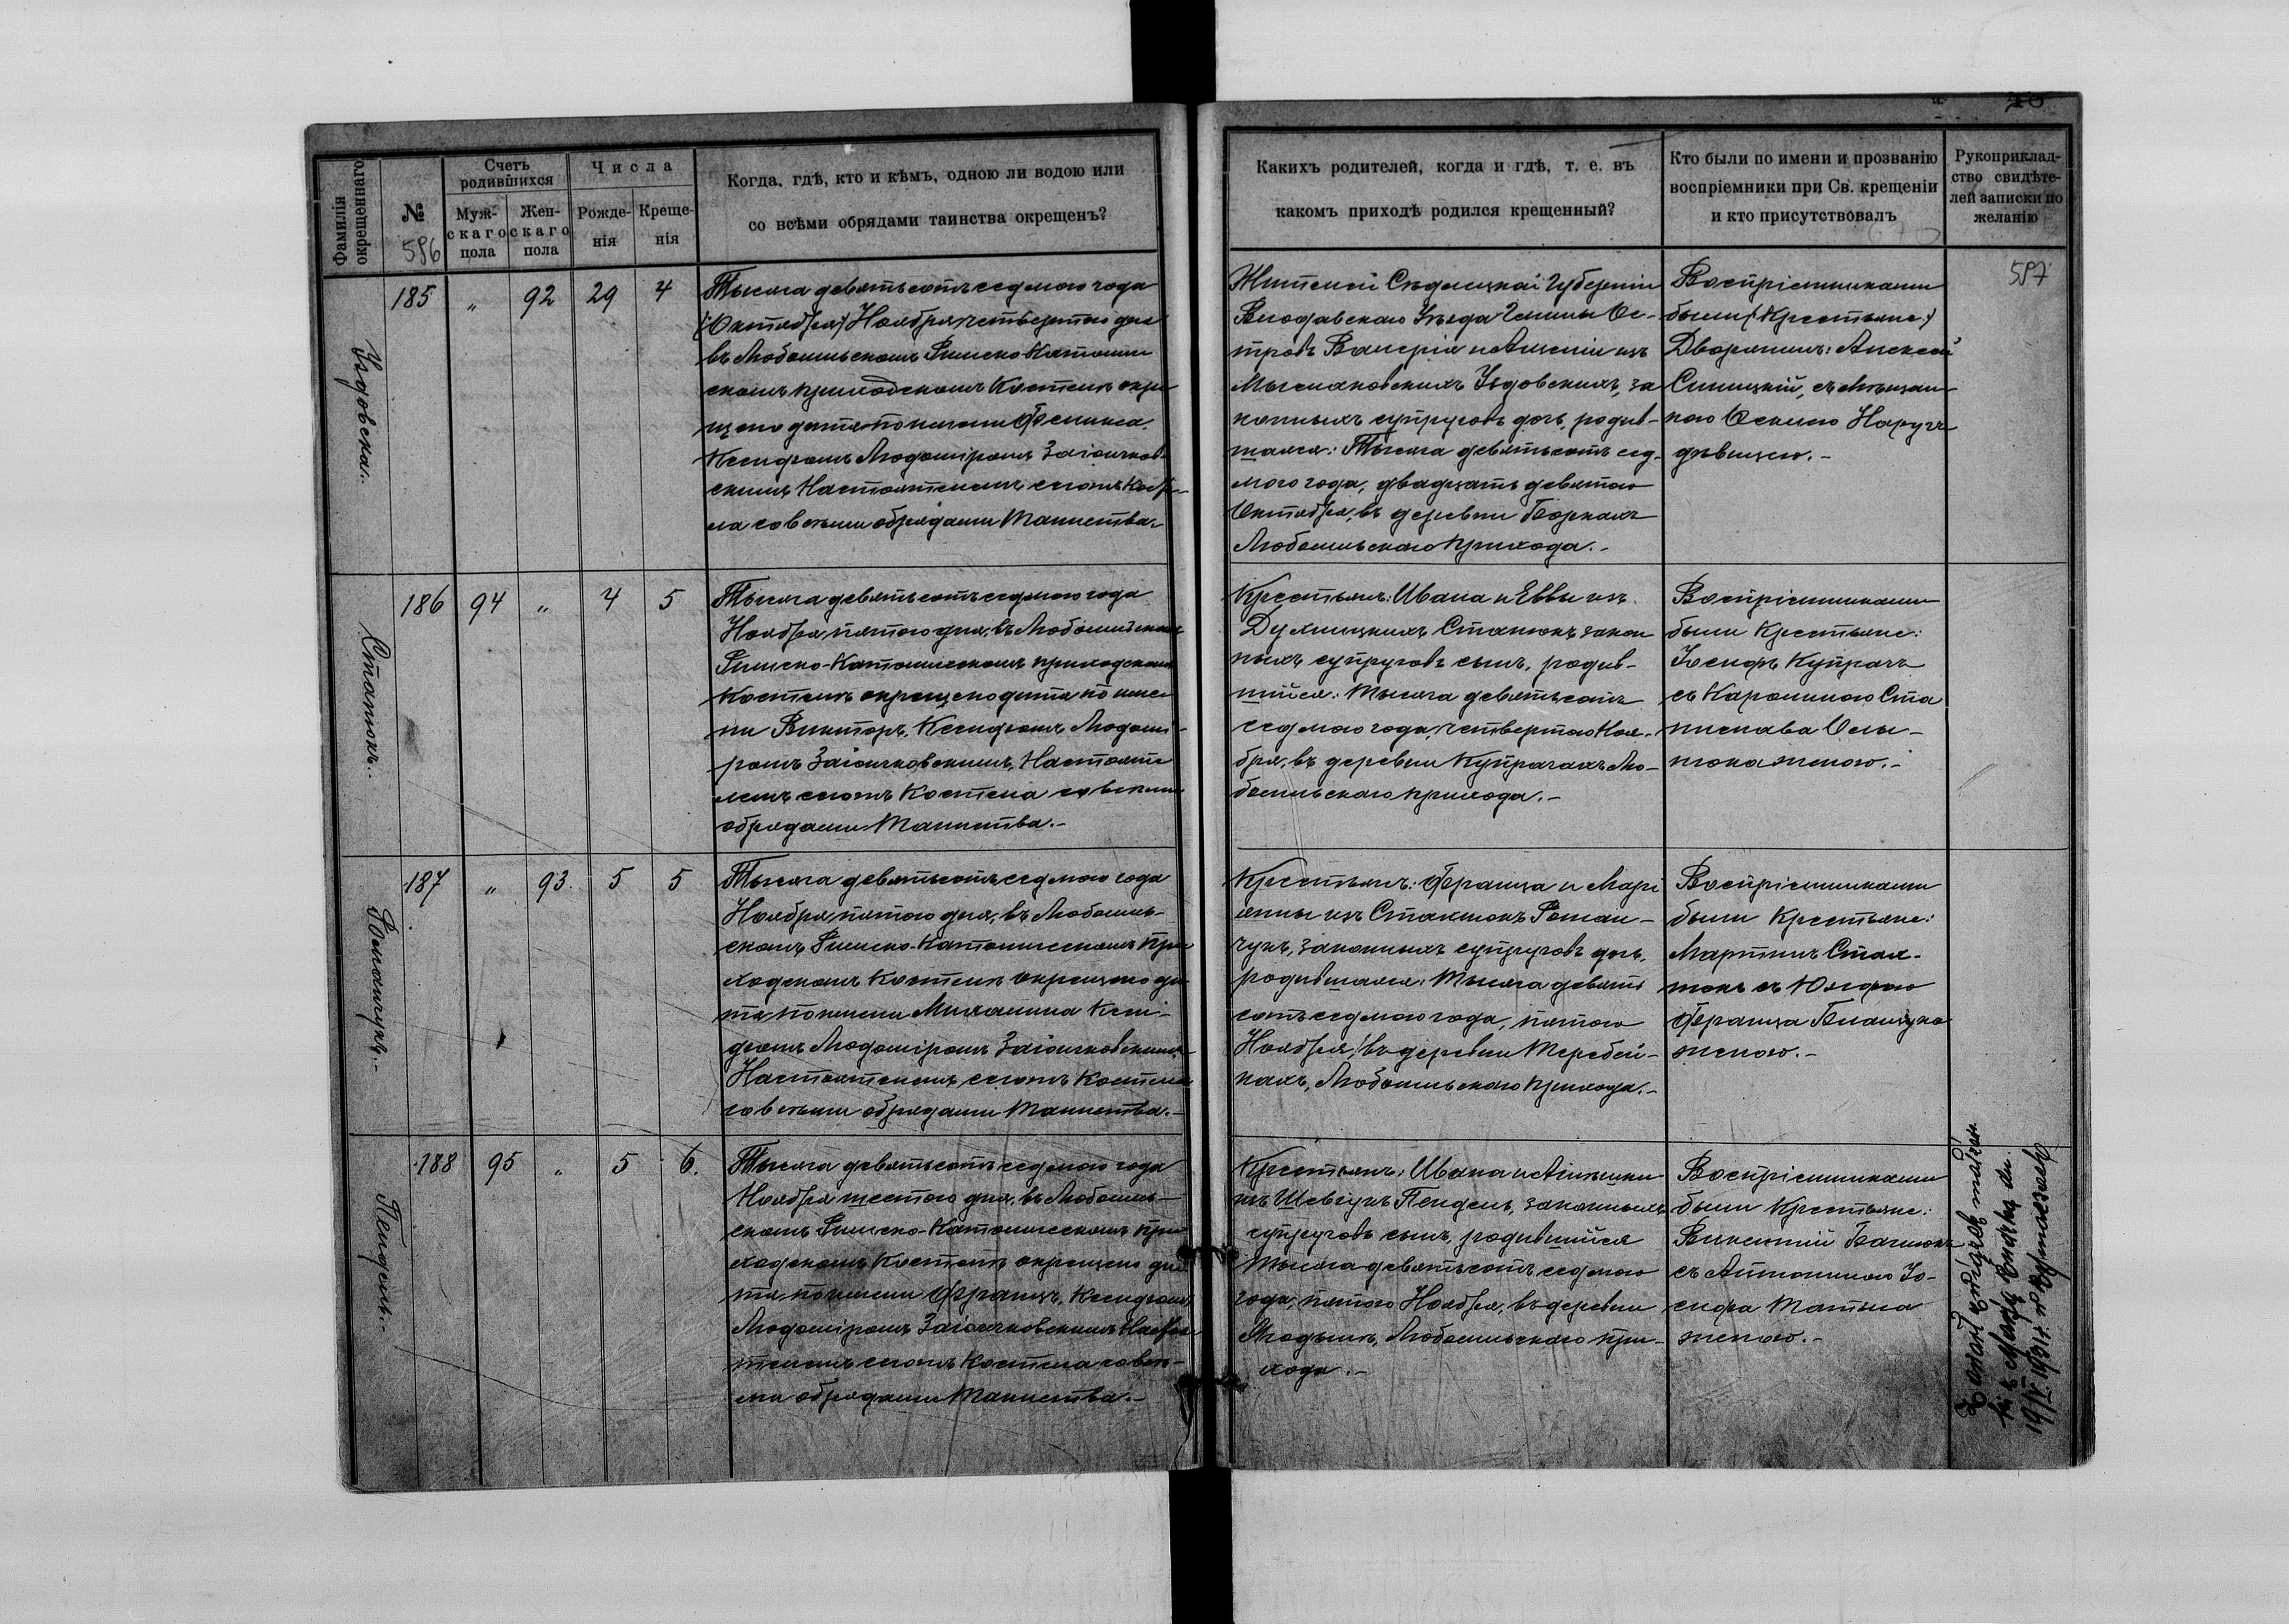 Фамилія
окрещеннаго
№
586
Счетъ
родившихся
Муж-
скаго
пола
Жен-
скаго
пола
Числа
Рожде-
нія
Креще-
нія
Когда, гдѣ, кто и кѣмъ, одною ли водою или
со всѣми обрядами таинства окрещенъ?
Каких родителей, когда и гдѣ, т. е. въ
какомъ приходѣ родился крещенный?
Кто были по имени и прозванію
воспріемники при Св. крещеніи
и кто присутствовалъ
Рукоприклад-
ство свидѣте-
лей записки по
желанію
587
185 „ 92 29 4
Тысяча девятьсотъ седмого года
(Октября) Ноября четвертого дня
въ Любомльскомъ Римско Католи
скомъ приходскомъ Костелѣ окре
щено дитя по имени Феликса
Ксендзомъ Людоміромъ Заіончков-
скимъ Настоятелемъ сего Косте-
ла со всѣми обрядами Таинства.
Жителей Сѣдлецкой Губерніи
Влодавскаго Уѣзда Гмины Ос-
тровъ Валерія и изъ
за
конныхъ супруговъ дочь, родив-
шаяся: Тысяча девятьсотъ сед-
мого года, двадцать девятого
Октября, въ деревни Боркахъ
Любомльского прихода.-
Воспріемниками
были (Крестьяне)
Дворянинъ: Алексѣй
съ Мѣщан
кою
186 94 „ 4 5
Станюкъ.
Тысяча девятьсотъ седмого года
Ноября пятого дня, въ Любомльскомъ
Римско-Католическомъ приходскомъ
Костелѣ окрещено дитя по име
ни Викторъ, Ксендзомъ Людомі-
ромъ Заіончковскимъ, Настояте
лемъ сего Костела со всѣми
обрядами Таинства.-
Крестьянъ: Ивана и Еввы изъ
Станюкъ закон
ныхъ супруговъ сынъ, родив-
шійся: Тысяча девятьсотъ
седмого года, четвертого Ноя-
бря, въ деревни Купрачахъ Лю-
бомльского прихода.-
Воспріемниками
были Крестьяне:
Іосифъ Купрачъ
съ Каролиною Ста
нислава
женою.-
187 „ 93. 5 5
Тысяча девятьсотъ седмого года
Ноября пятого дня, въ Любомль-
скомъ Римско-Католическомъ при
ходскомъ Костелѣ окрещено ди
тя по имени Михалина Ксен-
дзомъ Людоміромъ Заіончковскимъ
Настоятелемъ сего Костела
со всѣми обрядами Таинства.-
Крестьянъ: Франца и Марі
янны изъ Роман-
чукъ, законныхъ супруговъ дочь,
родившаяся: Тысяча девять
сотъ седмого года, пятого
Ноября, въ деревни Теребей-
кахъ, Любомльского прихода.-
Воспріемниками
были Крестьяне:
Мартинъ
съ Юзефою
Франца
женою.-
188 95 „ 5 6.
Пендель.-
Тысяча девятьсотъ седмого года
Ноября шестого дня, въ Любомль-
скомъ Римско-Католическомъ при
ходскомъ Костелѣ окрещено ди
тя по имени Францъ, Ксендзомъ
Людоміромъ Заіончковскимъ Настоя
телемъ сего Костела со всѣ-
ми обрядами Таинства.-
Крестьянъ: Ивана и
изъ Шевчукъ Пендель, законныхъ
супруговъ сынъ, родившійся
Тысяча девятьсотъ седмого
года, пятого Ноября, въ деревни
Любомльского при-
хода.-
Воспріемниками
были Крестьяне:
Викентій
съ Антониною Іо-
сифа
женою.-